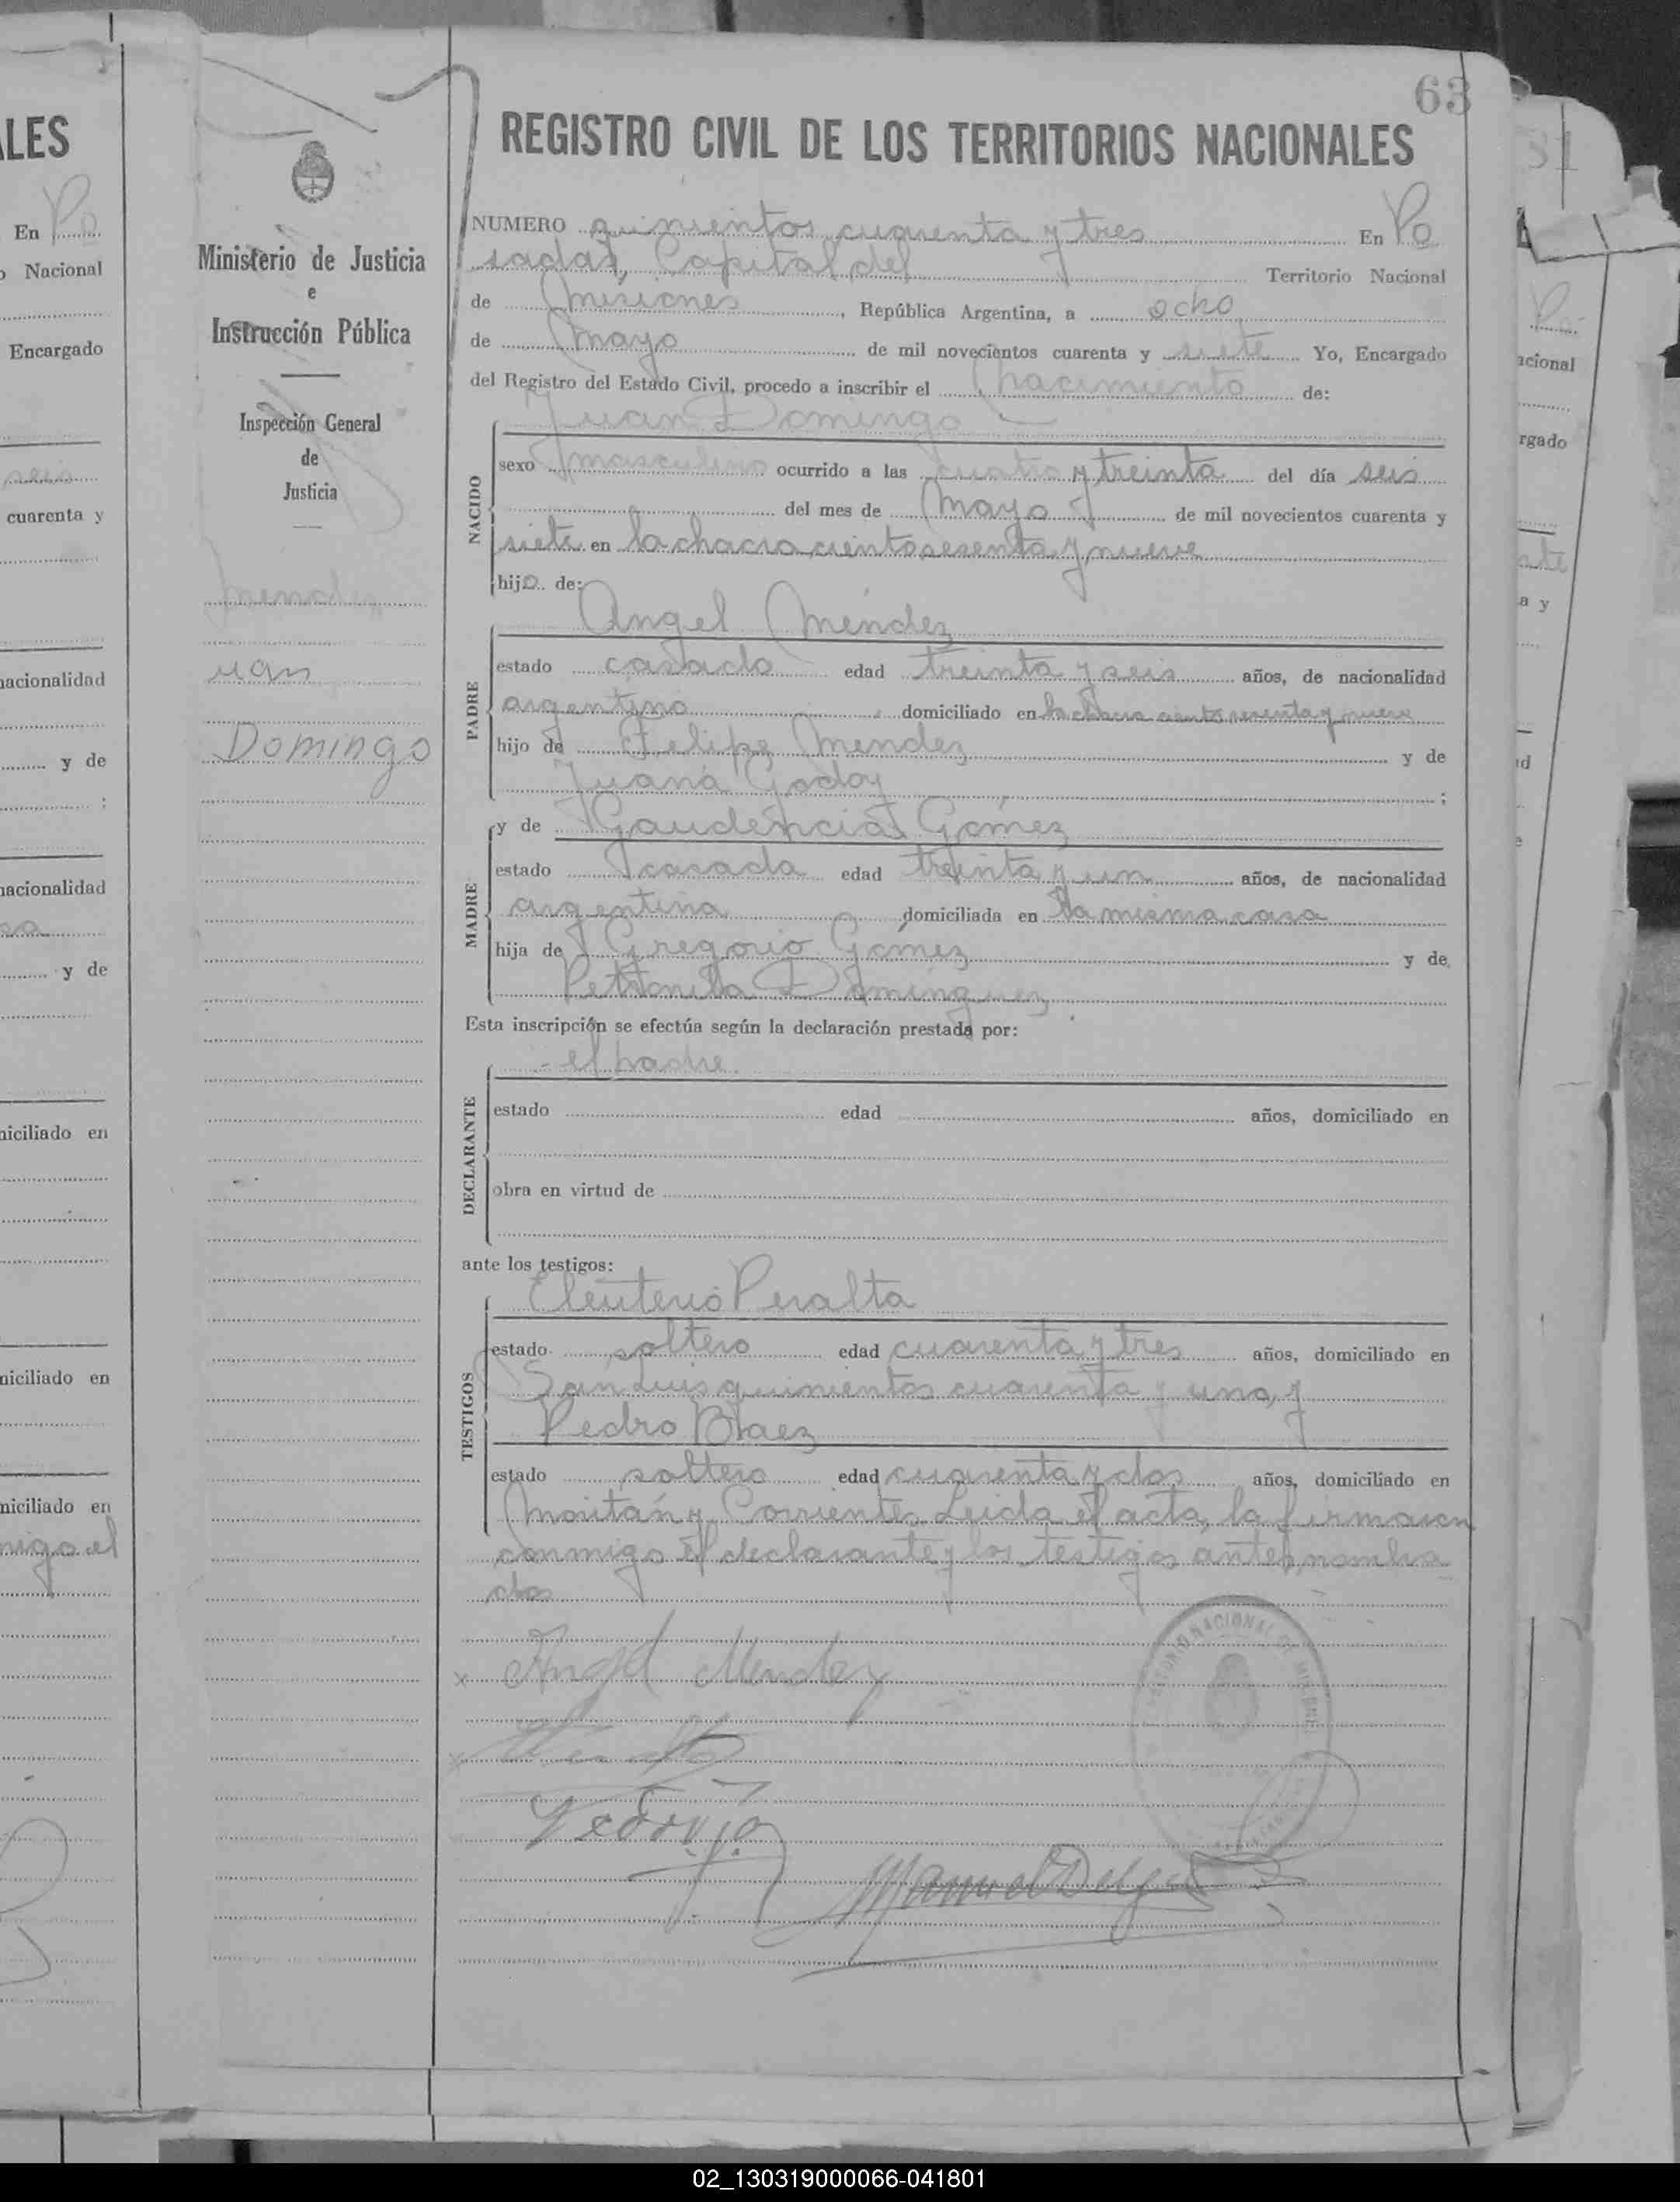 63
REGISTRO CIVIL DE LOS TERRITORIOS NACIONALES
Ministerio de Justicia
e
Instrucción Pública
Inspección General
de
Justicia
Mendez
uan
Domingo
NUMERO quinientos cuarenta y tres En Po
sadas, Capital del Territorio Nacional
de Misiones, República Argentina, a ocho
de Mayo de mil novecientos cuarenta y siete Yo, Encargado
del Registro del Estado Civil, procedo a inscribir el nacimiento de:
Juan Domingo
NACIDO
sexo masculino ocurrido a las cuatro y treinta del día seis
del mes de Mayo de mil novecientos cuarenta y
siete en la chacra ciento sesenta y nueve
hijo de:
Angel Méndez
PADRE
estado casado edad treinta y seis años, de nacionalidad
argentino domiciliado en la chacra ciento sesenta y nueve
hijo de Felipe Mendez y de
Juana Godoy ;
y de Gaudencia Gómez
MADRE
estado casada edad treinta y un años, de nacionalidad
argentina domiciliada en la misma casa
hija de Gregorio Gómez y de
Petronila Dominguez.
Esta inscripción se efectúa según la declaración prestada por:
- el padre.
DECLARANTE
estado edad años, domiciliado en
obra en virtud de
ante los testigos:
Eleuterio Peralta
TESTIGOS
estado soltero edad cuarenta y tres años, domiciliado en
San Luis quinientos cuarenta y uno, y
Pedro Baez
estado soltero edad cuarenta y dos años, domiciliado en
Moritán y Corrientes. Leida el acta, la firmaron
conmigo el declarante y los testigos antes nombra
dos
x Angel Mendez
x
Manuel Delgado
TERRITORIO NACIONAL DE MISIONES
ALES
En Po
o Nacional
Encargado
seis
cuarenta y
nacionalidad
y de
;
nacionalidad
y de
miciliado en
niciliado en
niciliado en
migo el
51
acional
rgado
a y
02_130319000066-041801